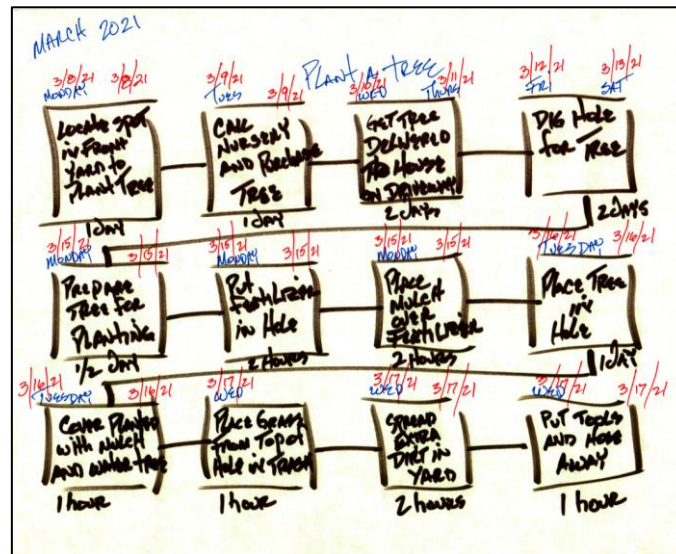 MARCH 2021
PLANT A TREE
3/8/21 3/8/21
MONDAY
LOCATE SPOT
IN FRONT
YARD TO
PLANT TREE
1 DAY
3/9/21 3/9/21
TUES
CALL
NURSERY
AND PURCHASE
TREE
1 DAY
3/10/21 3/11/21
WED THURS
GET TREE
DELIVERED
TO HOUSE
ON DRIVEWAY
2 DAYS
3/12/21 3/13/21
FRI SAT
DIG HOLE
for TREE
2 DAYS
3/15/21 3/15/21
MONDAY
PREPARE
TREE FOR
PLANTING
1/2 DAY
3/15/21 3/15/21
MONDAY
PUT
FERTILIZER
IN HOLE
2 HOURS
3/15/21 3/15/21
MONDAY
PLACE
MULCH
OVER
FERTILIZER
2 HOURS
3/16/21 3/16/21
TUESDAY
PLACE TREE
IN
HOLE
1 DAY
3/16/21 3/16/21
TUESDAY
COVER PLANTED
WITH MULCH
AND WATER TREE
1 hour
3/17/21 3/17/21
WED
PLACE GRASS
FROM TOP OF
HOLE IN TRASH
1 hour
3/17/21 3/17/21
WED
SPREAD
EXTRA
DIRT IN
YARD
2 hours
3/17/21
WED
PUT TOOLS
AND HOSE
AWAY
1 hour